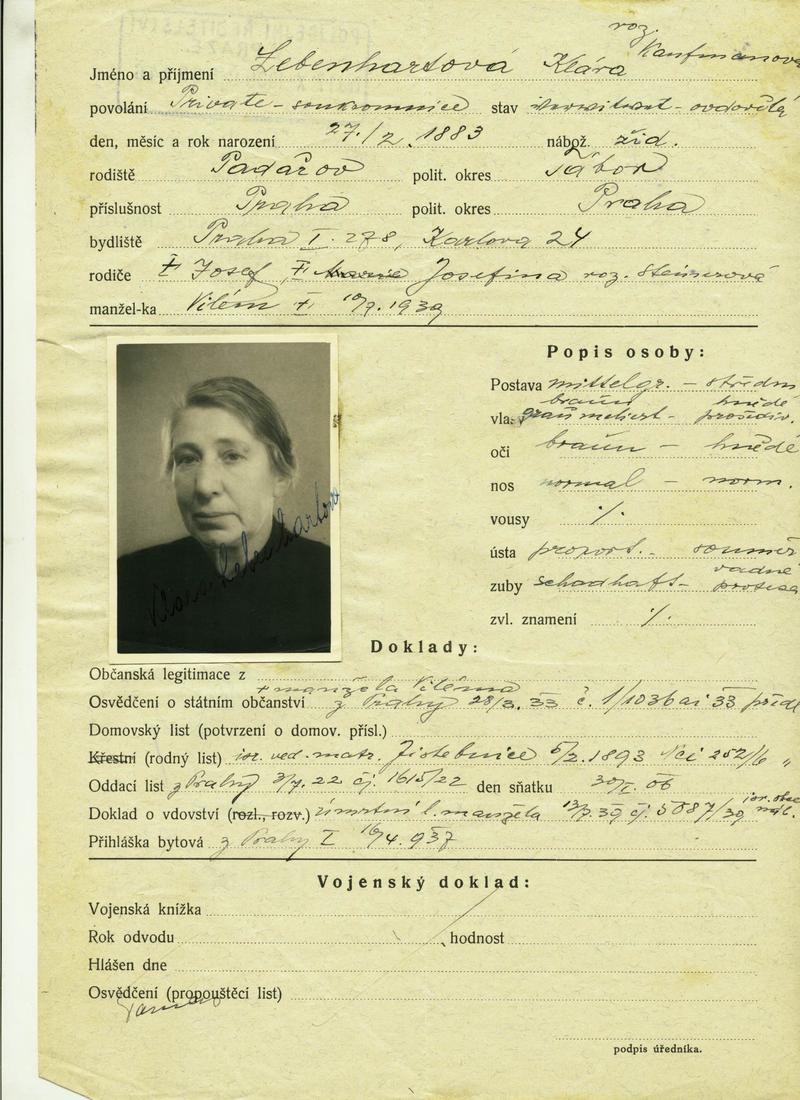 roz. Kaufmanova
Jméno a příjmení Lebenhartová Klára
povolání Private - soukromnice stav verwitwet - ovdovělá
den, měsíc a rok narození 27./2. 1883 nábož. žid.
rodiště Padařov polit. okres Tábor
příslušnost Praha polit. okres Praha
bydliště Praha I. 278, Karlova 24
rodiče † Josef, † Josefina roz. Steinerová
manžel-ka Vilém † 10/7. 1939
Popis osoby:
Postava mittelgr. - středn
braun hnědé
vlasy grau meliert - prošediv.
oči braun - hnědé
nos normal - norm.
vousy ·/·
ústa proport. - souměr
vadné
zuby schadhaft - protesa
zvl. znamení ·/·
Klara Lebenhartová
Doklady:
Občanská legitimace z
+ manžela Viléma
Osvědčení o státním občanství z Prahy 28/3. 33 č. 1/1036 ai 33 příd
Domovský list (potvrzení o domov. přísl.)
Křestní (rodný list) isr. ved. matr. Jistebnice 5/2. 1893 252/6 "
Oddací list z Prahy 3/7. 22 čj. 1615/22 den sňatku 30/I. 06
Doklad o vdovství (rozl., rozv.) úmrtní l. manžela 13/7. 39 čj. 5087/39 isr. obec
Přihláška bytová z Prahy I 16/4. 937
Vojenský doklad:
Vojenská knížka
Rok odvodu hodnost
Hlášen dne
Osvědčení (propouštěcí list)
podpis úředníka.